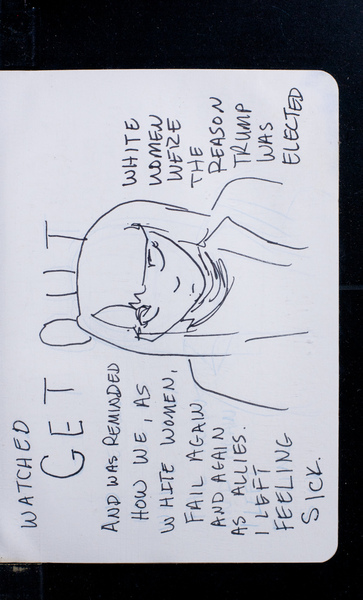 WATCHED
GET OUT
AND WAS REMINDED
HOW WE, AS
WHITE WOMEN,
FAIL AGAIN
AND AGAIN
AS ALLIES.
I LEFT
FEELING
SICK.
WHITE
WOMEN
WERE
THE
REASON
TRUMP
WAS
ELECTED